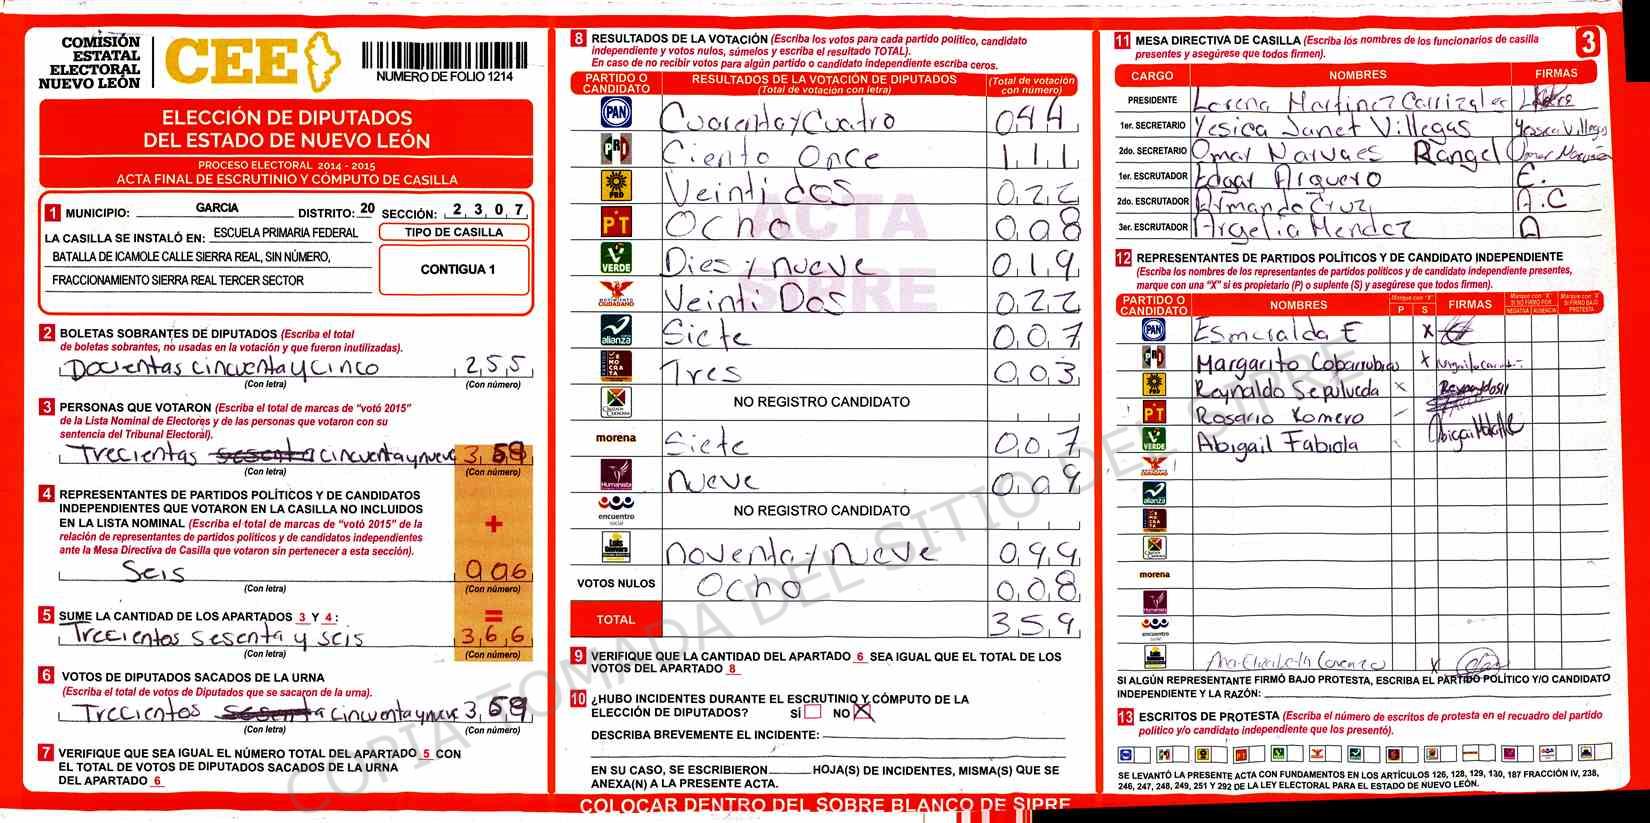 COMISIÓN
ESTATAL
ELECTORAL
NUEVO LEÓN
CEE
NUMERO DE FOLIO 1214
ELECCIÓN DE DIPUTADOS
DEL ESTADO DE NUEVO LEÓN
PROCESO ELECTORAL 2014 - 2015
ACTA FINAL DE ESCRUTINIO Y CÓMPUTO DE CASILLA
1 MUNICIPIO: GARCIA DISTRITO: 20 SECCIÓN: 2 3 0 7
LA CASILLA SE INSTALÓ EN: ESCUELA PRIMARIA FEDERAL
BATALLA DE ICAMOLE CALLE SIERRA REAL, SIN NÚMERO,
FRACCIONAMIENTO SIERRA REAL TERCER SECTOR
TIPO DE CASILLA
CONTIGUA 1
2 BOLETAS SOBRANTES DE DIPUTADOS (Escriba el total
de boletas sobrantes, no usadas en la votación y que fueron inutilizadas).
Docientas cincuenta y cinco 2 5 5
(Con letra) (Con número)
3 PERSONAS QUE VOTARON (Escriba el total de marcas de “votó 2015”
de la Lista Nominal de Electores y de las personas que votaron con su
sentencia del Tribunal Electoral).
Trecientas cincuenta y nueve 3 5 9
(Con letra) (Con número)
4 REPRESENTANTES DE PARTIDOS POLÍTICOS Y DE CANDIDATOS
INDEPENDIENTES QUE VOTARON EN LA CASILLA NO INCLUIDOS
EN LA LISTA NOMINAL (Escriba el total de marcas de “votó 2015” de la
relación de representantes de partidos políticos y de candidatos independientes
ante la Mesa Directiva de Casilla que votaron sin pertenecer a esta sección).
+
Seis 0 0 6
(Con letra) (Con número)
5 SUME LA CANTIDAD DE LOS APARTADOS 3 Y 4 : =
Trecientos sesenta y seis 3 6 6
(Con letra) (Con número)
6 VOTOS DE DIPUTADOS SACADOS DE LA URNA
(Escriba el total de votos de Diputados que se sacaron de la urna).
Trecientos cincuenta y nueve 3 5 9
(Con letra) (Con número)
7 VERIFIQUE QUE SEA IGUAL EL NÚMERO TOTAL DEL APARTADO 5 CON
EL TOTAL DE VOTOS DE DIPUTADOS SACADOS DE LA URNA
DEL APARTADO 6
8 RESULTADOS DE LA VOTACIÓN (Escriba los votos para cada partido político, candidato
independiente y votos nulos, súmelos y escriba el resultado TOTAL).
En caso de no recibir votos para algún partido o candidato independiente escriba ceros.
PARTIDO O CANDIDATO RESULTADOS DE LA VOTACIÓN DE DIPUTADOS (Total de votación con letra) (Total de votación con número)
PAN Cuarenta y Cuatro 0 4 4
PRI Ciento Once 1 1 1
PRD Veinti dos 0 2 2
PT Ocho 0 0 8
VERDE Dies y nueve 0 1 9
MOVIMIENTO CIUDADANO Veinti Dos 0 2 2
alianza Siete 0 0 7
DEMOCRATA Tres 0 0 3
NO REGISTRO CANDIDATO
morena Siete 0 0 7
Humanista nueve 0 0 9
encuentro social NO REGISTRO CANDIDATO
noventa y nueve 0 9 9
VOTOS NULOS Ocho 0 0 8
TOTAL 3 5 9
ACTA
SIPRE
9 VERIFIQUE QUE LA CANTIDAD DEL APARTADO 6 SEA IGUAL QUE EL TOTAL DE LOS
VOTOS DEL APARTADO 8
10 ¿HUBO INCIDENTES DURANTE EL ESCRUTINIO Y CÓMPUTO DE LA
ELECCIÓN DE DIPUTADOS? SÍ NO X
DESCRIBA BREVEMENTE EL INCIDENTE:
EN SU CASO, SE ESCRIBIERON HOJA(S) DE INCIDENTES, MISMA(S) QUE SE
ANEXA(N) A LA PRESENTE ACTA.
COLOCAR DENTRO DEL SOBRE BLANCO DE SIPRE
11 MESA DIRECTIVA DE CASILLA (Escriba los nombres de los funcionarios de casilla
presentes y asegúrese que todos firmen).
3
CARGO NOMBRES FIRMAS
PRESIDENTE Lorena Martinez Carrizales
1er. SECRETARIO Yesica Janet Villegas Yessica Villegas
2do. SECRETARIO Omar Narvaes Rangel
1er. ESCRUTADOR Edgar Arguero E.
2do. ESCRUTADOR Armando Cruz A.C
3er. ESCRUTADOR Argelia Mendez A
12 REPRESENTANTES DE PARTIDOS POLÍTICOS Y DE CANDIDATO INDEPENDIENTE
(Escriba los nombres de los representantes de partidos políticos y de candidato independiente presentes,
marque con una “X” si es propietario (P) o suplente (S) y asegúrese que todos firmen).
PARTIDO O CANDIDATO NOMBRES Marque con “X” P S FIRMAS Marque con “X” SI NO FIRMÓ POR NEGATIVA AUSENCIA Marque con “X” SI FIRMÓ BAJO PROTESTA
PAN Esmeralda E x
PRI Margarito Cobarrubias x
PRD Reynaldo Sepulveda x
PT Rosario Romero
VERDE Abigail Fabiola
alianza
morena
Humanista
encuentro social
x
SI ALGÚN REPRESENTANTE FIRMÓ BAJO PROTESTA, ESCRIBA EL PARTIDO POLÍTICO Y/O CANDIDATO
INDEPENDIENTE Y LA RAZÓN:
13 ESCRITOS DE PROTESTA (Escriba el número de escritos de protesta en el recuadro del partido
político y/o candidato independiente que los presentó).
SE LEVANTÓ LA PRESENTE ACTA CON FUNDAMENTOS EN LOS ARTÍCULOS 126, 128, 129, 130, 187 FRACCIÓN IV, 238,
246, 247, 248, 249, 251 Y 292 DE LA LEY ELECTORAL PARA EL ESTADO DE NUEVO LEÓN.
COPIA TOMADA DEL SITIO DEL SIPRE